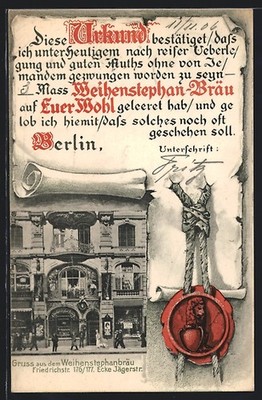 11/11 06
Diese Urkund bestätiget/daß
ich unterheutigem nach reifer Ueberle/
gung und guten Muths ohne von Je/
mandem gezwungen worden zu seyn—
3 Mass Weihenstephan-Bräu
auf Euer Wohl geleeret hab/ und ge
lob ich hiemit/daß solches noch oft
geschehen soll.
Berlin,
Unterschrift:
Fritz
Gruss aus dem Weihenstephanbräu
Friedrichstr. 176/177. Ecke Jägerstr.